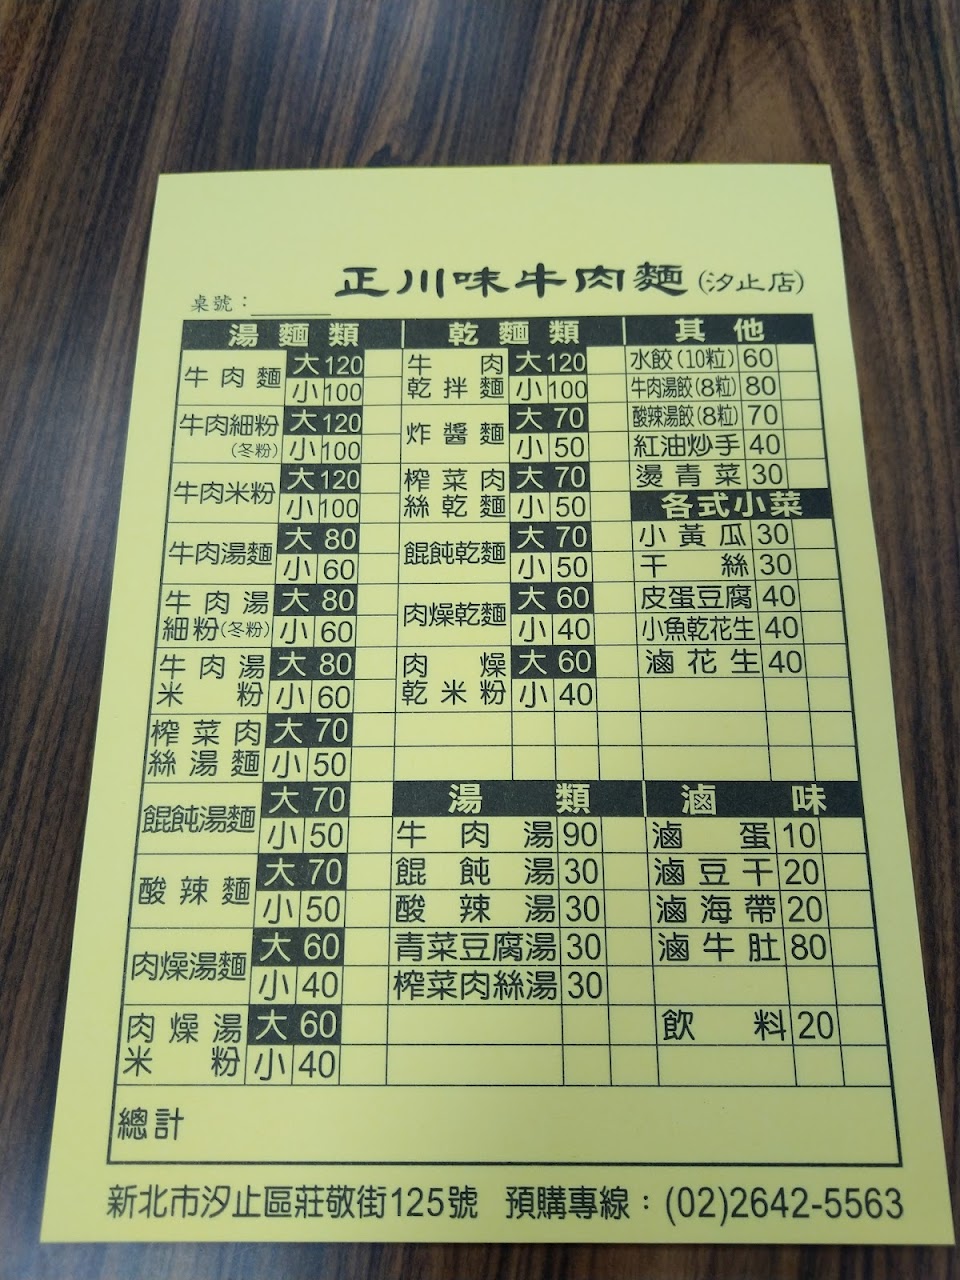 正川味牛肉麵(汐止店)
桌號：
湯麵類
牛肉麵 大 120
小 100
牛肉細粉(冬粉) 大 120
小 100
牛肉米粉 大 120
小 100
牛肉湯麵 大 80
小 60
牛肉湯細粉(冬粉) 大 80
小 60
牛肉湯米粉 大 80
小 60
榨菜肉絲湯麵 大 70
小 50
餛飩湯麵 大 70
小 50
酸辣麵 大 70
小 50
肉燥湯麵 大 60
小 40
肉燥湯米粉 大 60
小 40
乾麵類
牛肉乾拌麵 大 120
小 100
炸醬麵 大 70
小 50
榨菜肉絲乾麵 大 70
小 50
餛飩乾麵 大 70
小 50
肉燥乾麵 大 60
小 40
肉燥乾米粉 大 60
小 40
其他
水餃(10粒) 60
牛肉湯餃(8粒) 80
酸辣湯餃(8粒) 70
紅油炒手 40
燙青菜 30
各式小菜
小黃瓜 30
干絲 30
皮蛋豆腐 40
小魚乾花生 40
滷花生 40
湯類
牛肉湯 90
餛飩湯 30
酸辣湯 30
青菜豆腐湯 30
榨菜肉絲湯 30
滷味
滷蛋 10
滷豆干 20
滷海帶 20
滷牛肚 80
飲料 20
總計
新北市汐止區莊敬街125號 預購專線：(02)2642-5563